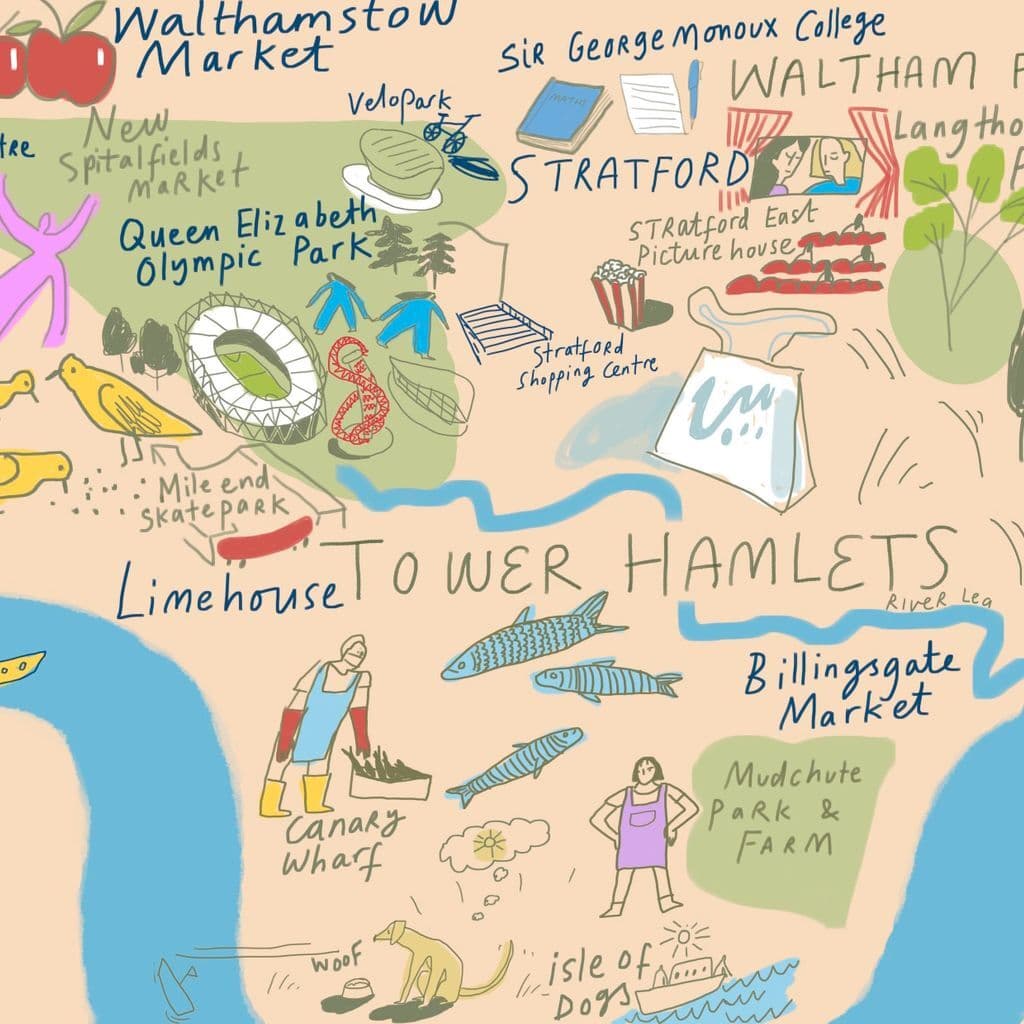 Walthamstow
Market
Sir George Monoux College
WALTHAM F
Velopark
MATHS
New
Spitalfields
Market
tre
Langtho
P
STRATFORD
Queen Elizabeth
Olympic Park
Stratford East
Picturehouse
Stratford
Shopping Centre
Mile end
Skatepark
TOWER HAMLETS
River Lea
Limehouse
Billingsgate
Market
Mudchute
Park &
Farm
Canary
Wharf
Woof
isle of
Dogs